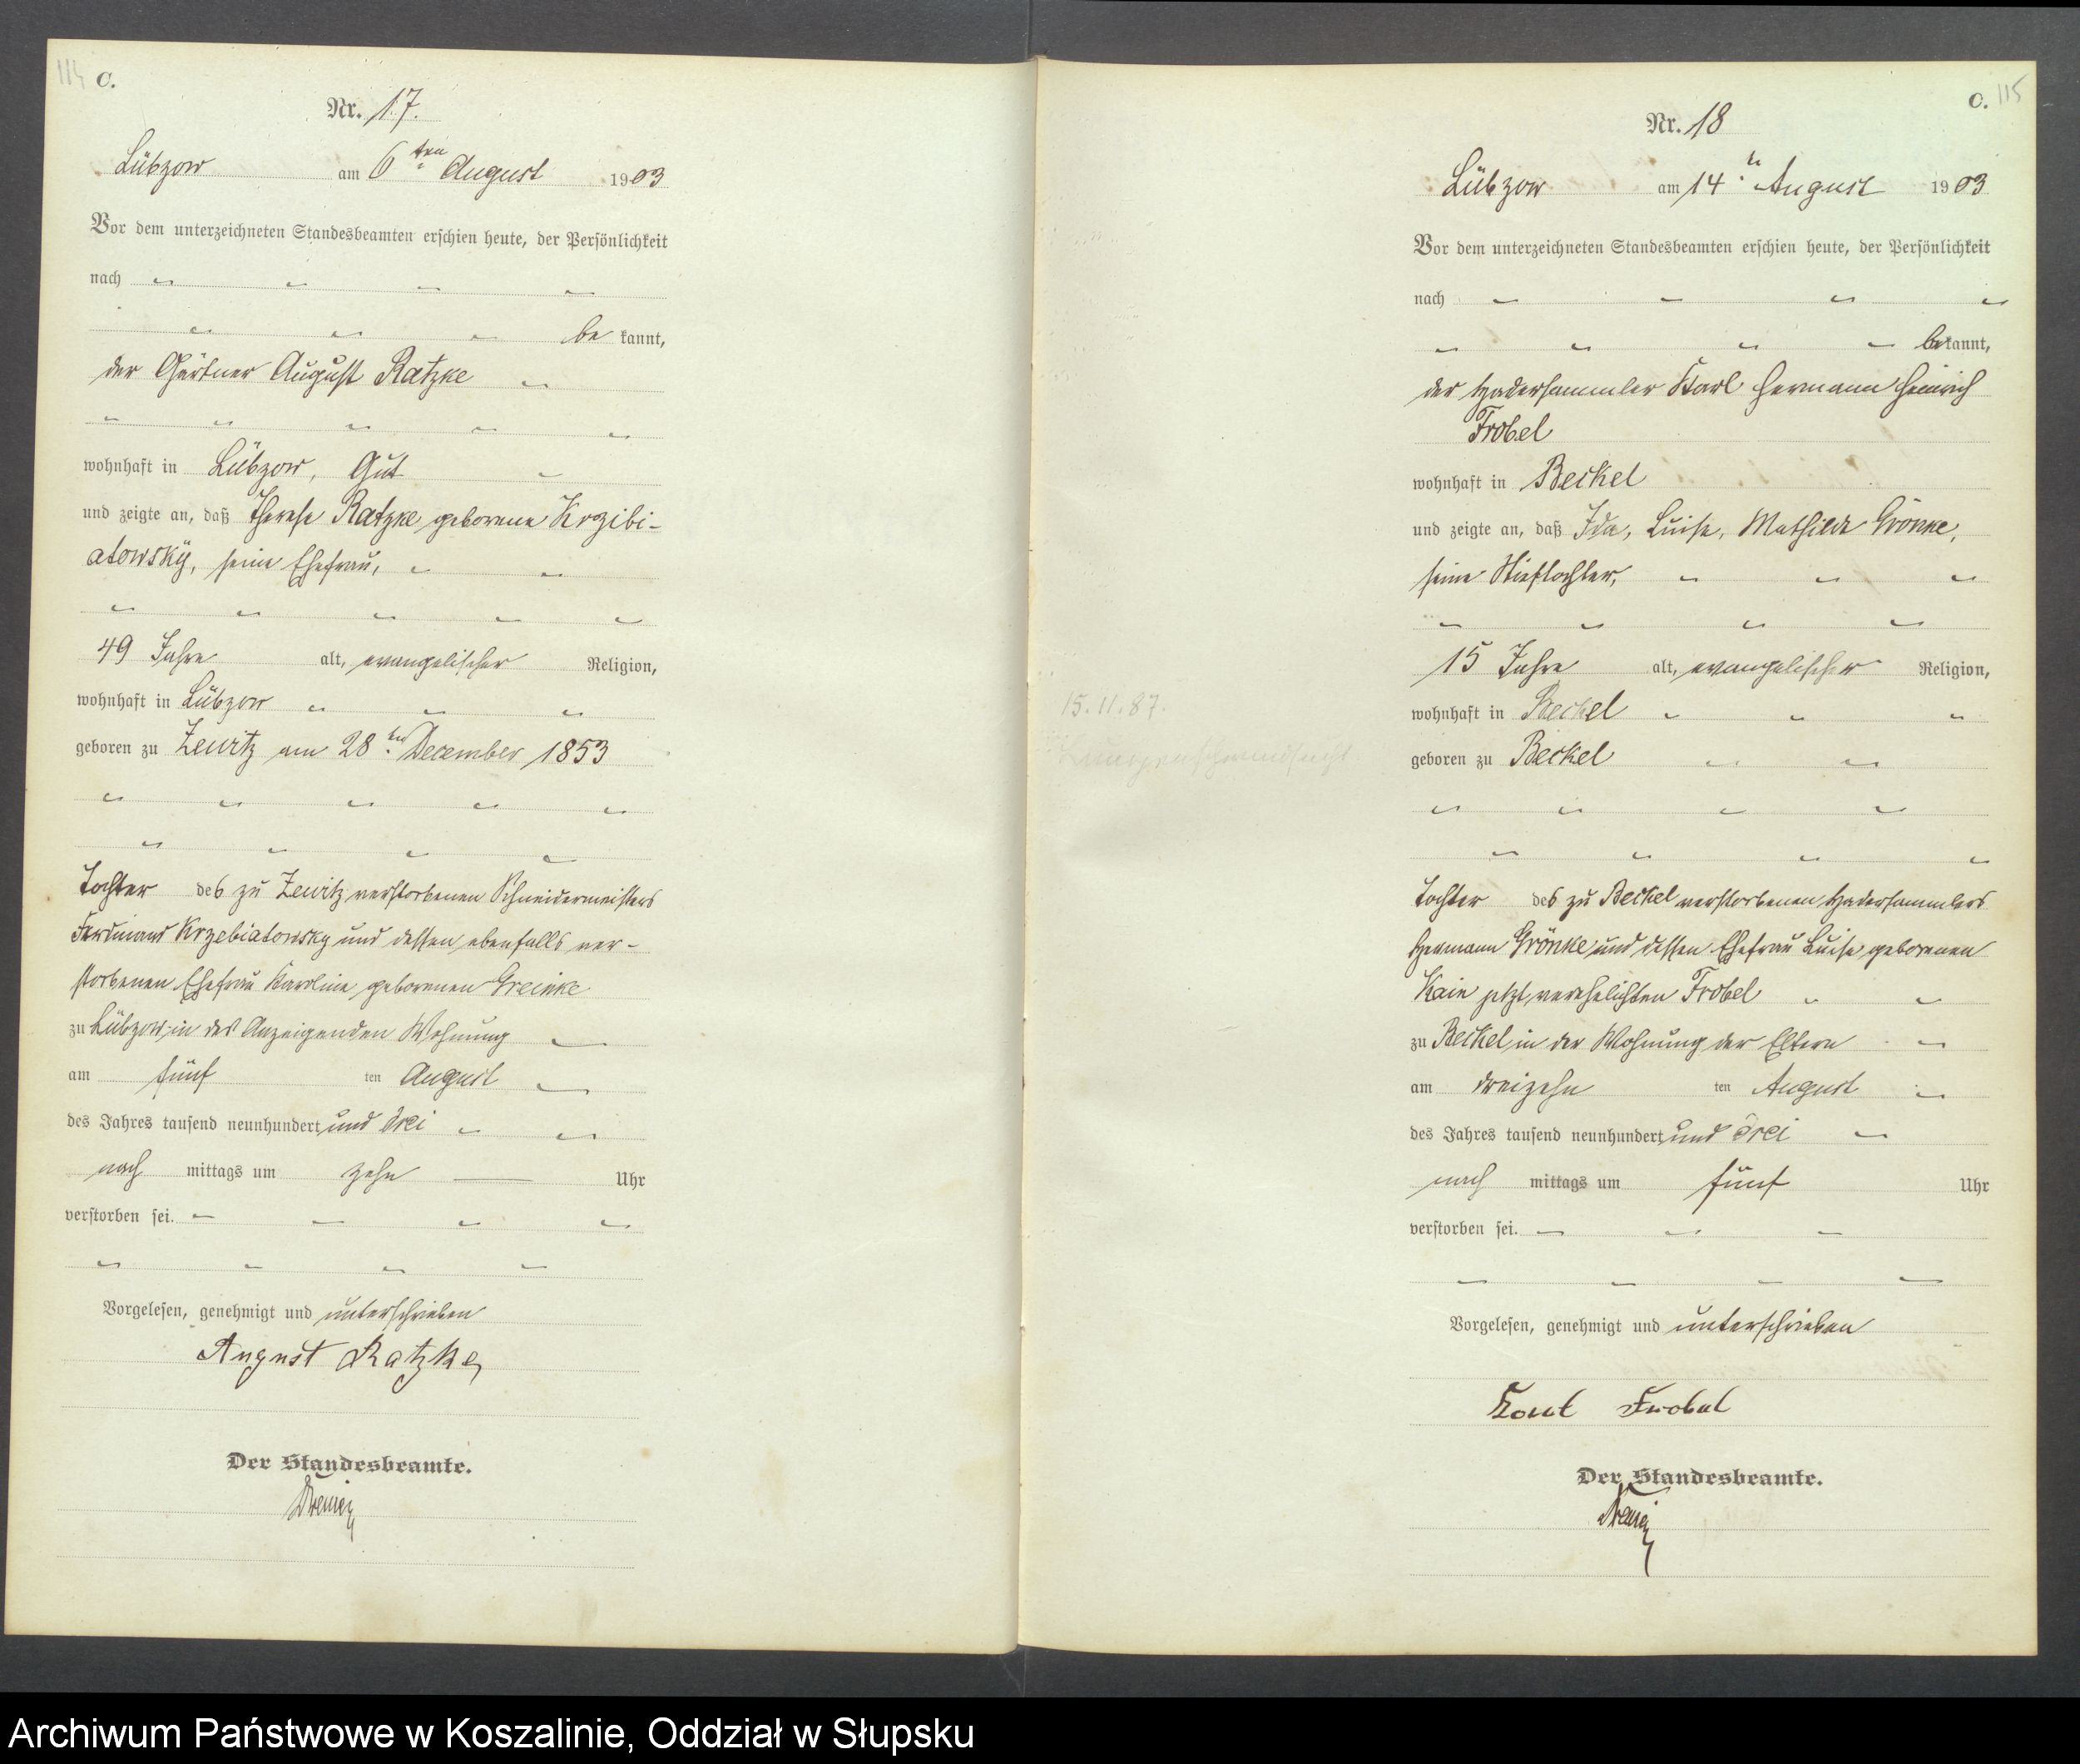 114 C.
Nr. 17.
Lübzow am 6ten August 1903
Vor dem unterzeichneten Standesbeamten erschien heute, der Persönlichkeit
nach
be kannt,
der Gärtner August Ratzke
wohnhaft in Lübzow, Gut
und zeigte an, daß Therese Ratzke geborene Krzibi-
atowsky, seine Ehefrau,
49 Jahre alt, evangelischer Religion,
wohnhaft in Lübzow
geboren zu Zewitz am 28ten December 1853
Tochter des zu Zewitz verstorbenen Schneidermeisters
Ferdinand Krzebiatowsky und dessen ebenfalls ver-
storbenen Ehefrau Karoline geborenen Greinke
zu Lübzow, in des Anzeigenden Wohnung
am fünf ten August
des Jahres tausend neunhundert und drei
nach mittags um zehn Uhr
verstorben sei.
Vorgelesen, genehmigt und unterschrieben
August Ratzke
Der Standesbeamte.
C. 115
Nr. 18
Lübzow am 14ten August 1903
Vor dem unterzeichneten Standesbeamten erschien heute, der Persönlichkeit
nach
bekannt,
der Hadersammler Karl Hermann Heinrich
Frobel
wohnhaft in Beckel
und zeigte an, daß Ida, Luise, Mathilde Grönke,
seine Stieftochter,
15 Jahre alt, evangelischer Religion,
15.11.87.
wohnhaft in Beckel
Lungenschwindsucht
geboren zu Beckel
Tochter des zu Beckel verstorbenen Hadersammlers
Hermann Grönke und dessen Ehefrau Luise geborenen
Kain jetzt verehelichten Frobel
zu Beckel in der Wohnung der Eltern
am dreizehn ten August
des Jahres tausend neunhundert und drei
nach mittags um fünf Uhr
verstorben sei.
Vorgelesen, genehmigt und unterschrieben
Karl Frobel
Der Standesbeamte.
Archiwum Państwowe w Koszalinie, Oddział w Słupsku